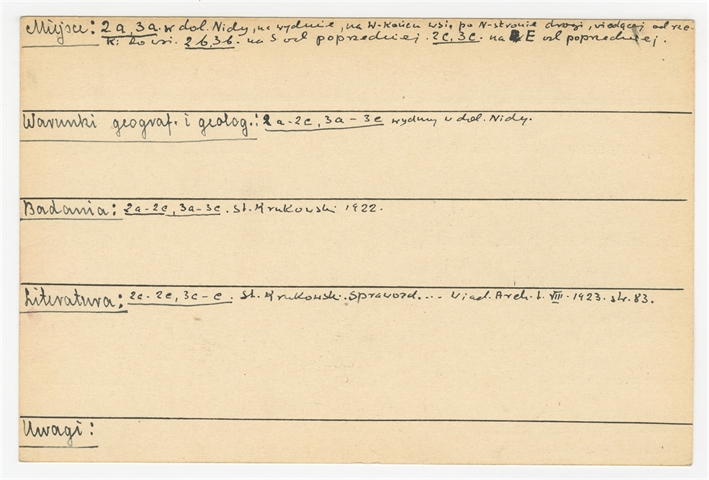 Miejsce: 2a, 3a. w dol. Nidy, na wydmie, na W-końcu wsi, po N-stronie drogi, wiodącej od rze-
ki do wsi. 2b, 3b. na S od poprzedniej. 2c, 3c. na E od poprzedniej.
Warunki geograf. i geolog.: 2a-2c, 3a-3c wydmy w dol. Nidy.
Badania: 2a-2c, 3a-3c. St. Krukowski 1922.
Literatura: 2c-2e, 3c-e. St. Krukowski. Sprawozd.... Wiad. Arch. t. VIII. 1923. str. 83.
Uwagi: